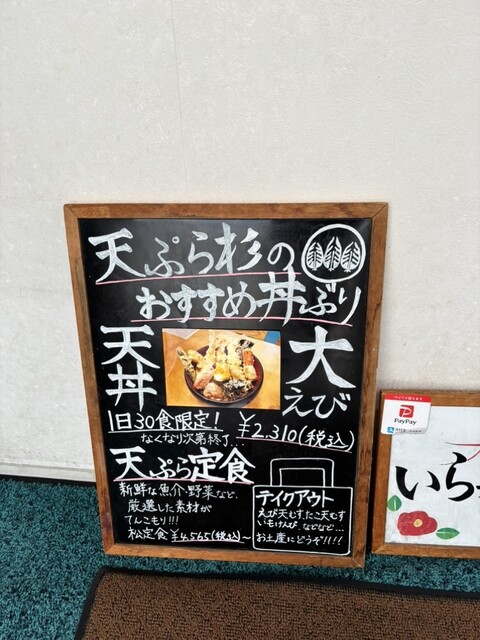 天ぷら杉の
おすすめ丼ぶり
天丼
大えび
1日30食限定!
¥2.310(税込)
なくなり次第終了...
天ぷら定食
新鮮な魚介・野菜など、
厳選した素材が
てんこもり!!!
松定食 ¥4.565(税込)~
テイクアウト
えび天むす、たこ天むす
いもけんぴ、などなど...
お土産にどうぞ!!!!
PayPay
いら